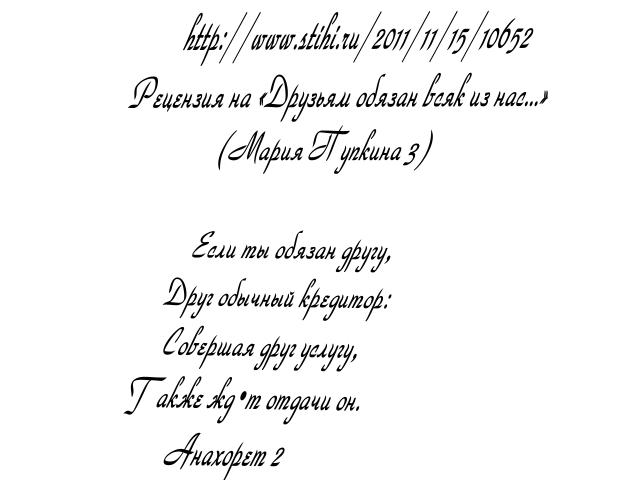 http://www.stihi.ru/2011/11/15/10652
Рецензия на «Друзьям обязан всяк из нас...»
(Мария Пупкина 3)
Если ты обязан другу,
Друг обычный кредитор:
Совершая друг услугу,
Также жд•т отдачи он.
Анахорет 2